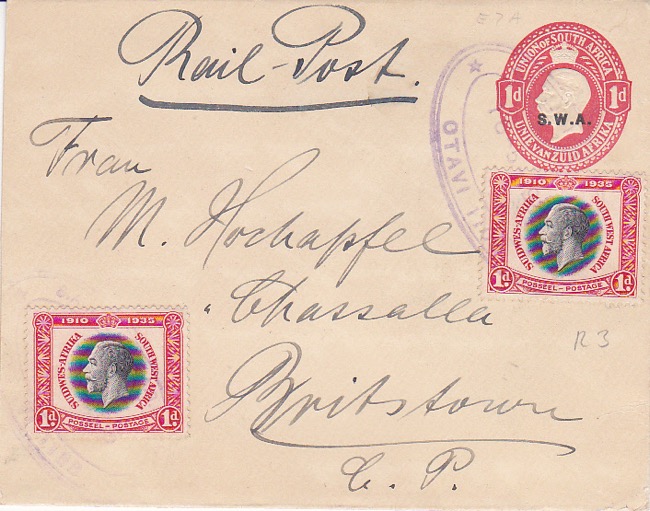 E7A
Rail-Post.
UNION OF SOUTH AFRICA
1d 1d
S.W.A.
UNIE VAN ZUID AFRIKA
OTAVI
Frau
M. Hochapfel
Chassalla
Britstown
C. P.
1910 1935
SUIDWES-AFRIKA SOUTH WEST AFRICA
1d. 1d.
POSSEEL-POSTAGE
R3
1910 1935
SUIDWES-AFRIKA SOUTH WEST AFRICA
1d. 1d.
POSSEEL-POSTAGE